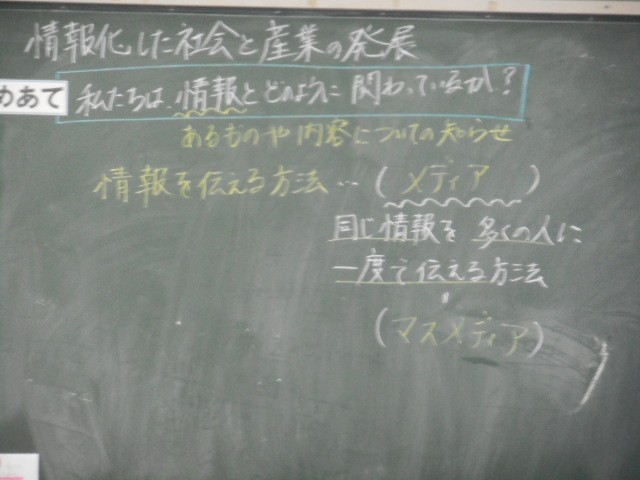 情報化した社会と産業の発展
めあて 私たちは、情報とどのように関わっているか?
あるものや内容についての知らせ
情報を伝える方法…(メディア)
同じ情報を多くの人に
一度で伝える方法
(マスメディア)